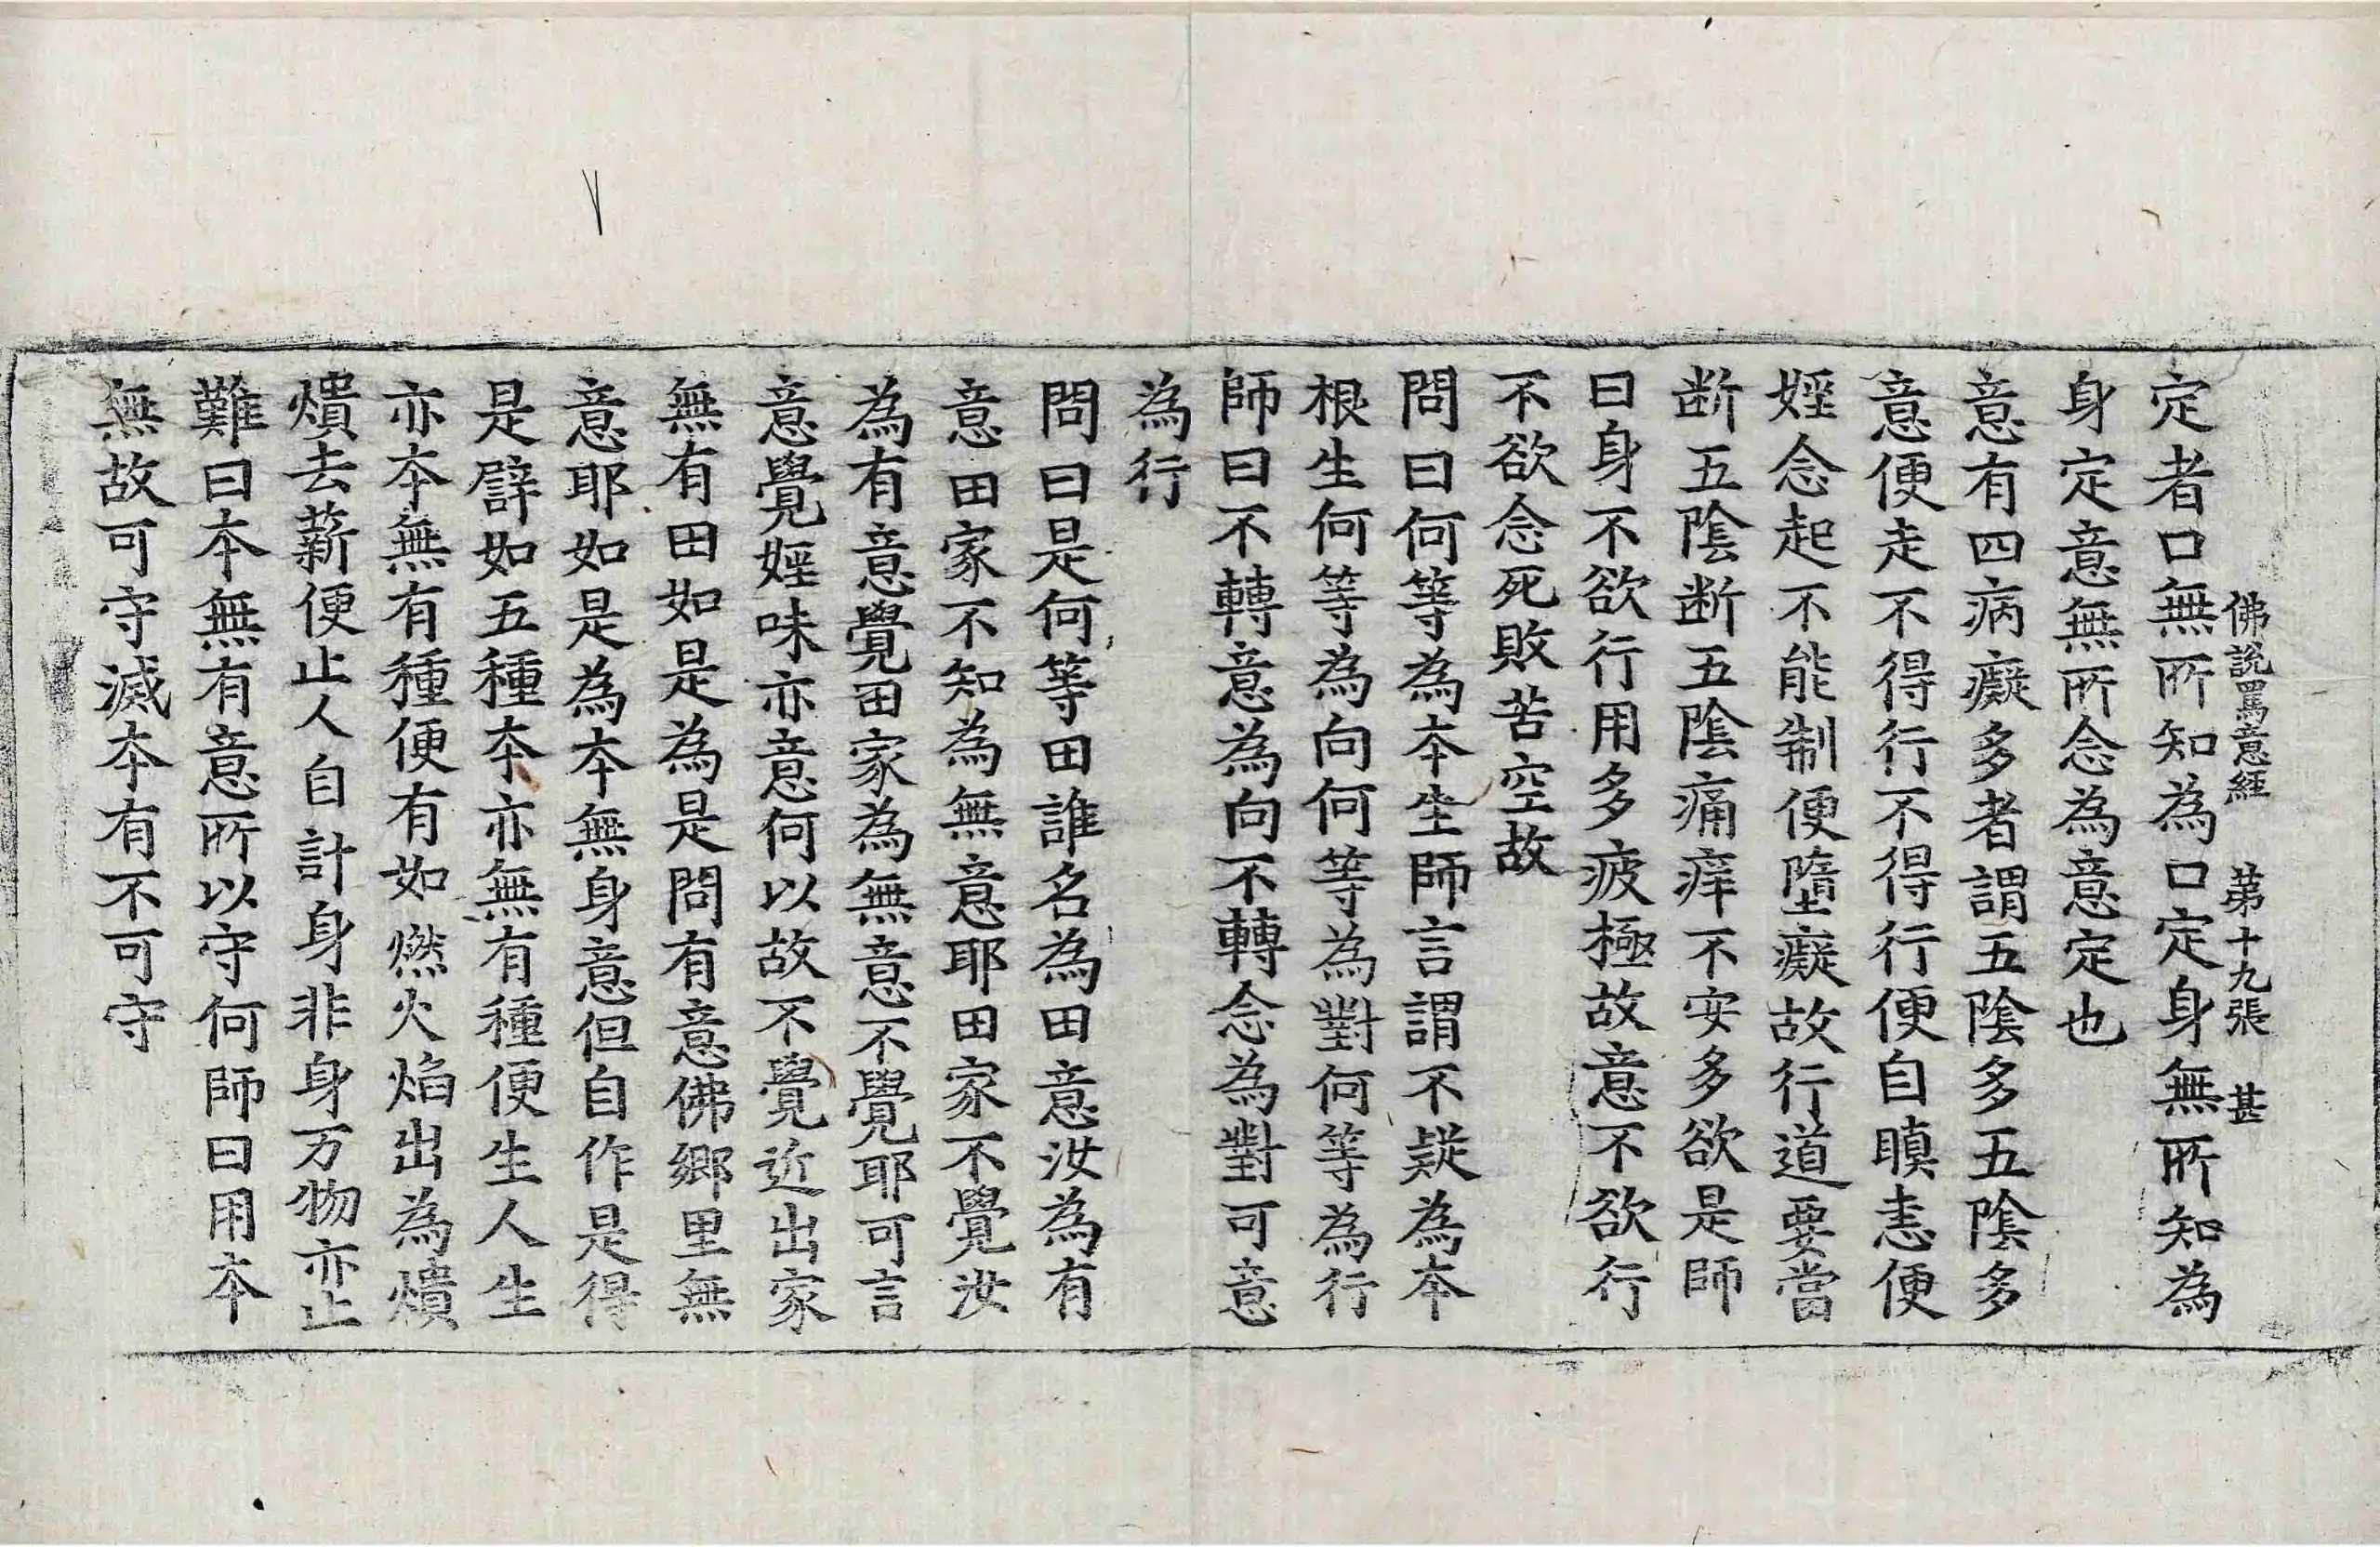 佛說罵意經　第十九張　甚
定者口無所知為口定身無所知為
身定意無所念為意定也
意有四病癡多者謂五陰多五陰多
意便走不得行不得行便自瞋恚便
婬念起不能制便墮癡故行道要當
断五陰断五陰痛痒不安多欲是師
曰身不欲行用多疲極故意不欲行
不欲念死敗苦空故
問曰何等為本生師言謂不疑為本
根生何等為向何等為對何等為行
師曰不轉意為向不轉念為對可意
為行
問曰是何等田誰名為田意汝為有
意田家不知為無意耶田家不覺汝
為有意覺田家為無意不覺耶可言
意覺婬味亦意何以故不覺近出家
無有田如是為是問有意佛鄉里無
意耶如是為本無身意但自作是得
是譬如五種本亦無有種便生人生
亦本無有種便有如燃火焰出為燌
燌去薪便止人自計身非身万物亦止
難曰本無有意所以守何師曰用本
無故可守滅本有不可守